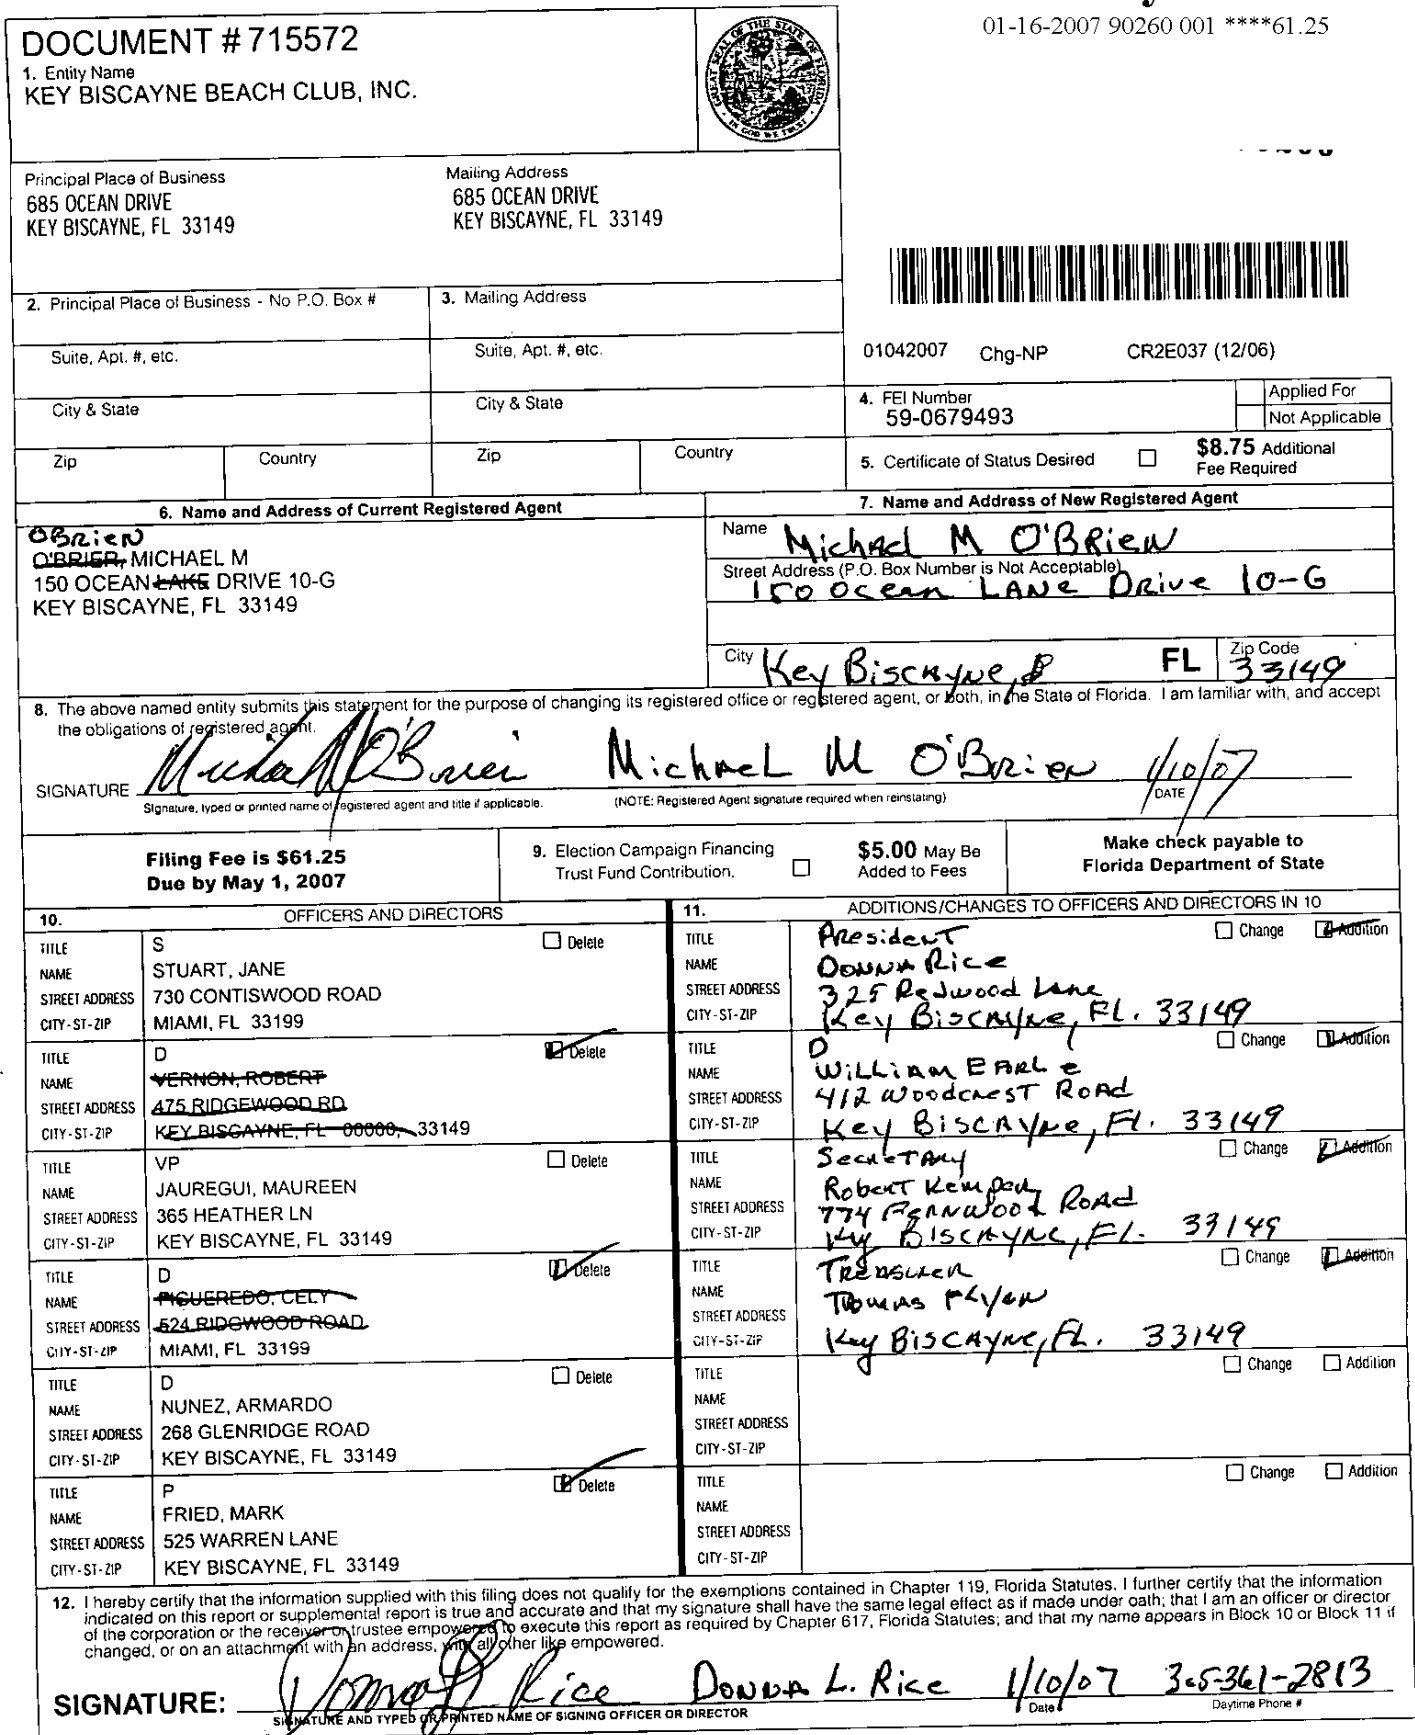 01-16-2007 90260 001 ****61.25
DOCUMENT # 715572
1. Entity Name
KEY BISCAYNE BEACH CLUB, INC.
GREAT SEAL OF THE STATE OF FLORIDA
IN GOD WE TRUST
Principal Place of Business
685 OCEAN DRIVE
KEY BISCAYNE, FL 33149
Mailing Address
685 OCEAN DRIVE
KEY BISCAYNE, FL 33149
2. Principal Place of Business - No P.O. Box #
3. Mailing Address
Suite, Apt. #, etc.
Suite, Apt. #, etc.
City & State
City & State
Zip Country
Zip Country
01042007 Chg-NP CR2E037 (12/06)
4. FEI Number
59-0679493
Applied For
Not Applicable
5. Certificate of Status Desired
$8.75 Additional
Fee Required
6. Name and Address of Current Registered Agent
OBrien
O'BRIER, MICHAEL M
150 OCEAN LAKE DRIVE 10-G
KEY BISCAYNE, FL 33149
7. Name and Address of New Registered Agent
Name Michael M O'BRIEN
Street Address (P.O. Box Number is Not Acceptable)
150 Ocean LANE Drive 10-G
City Key Biscayne, FL Zip Code 33149
8. The above named entity submits this statement for the purpose of changing its registered office or registered agent, or both, in the State of Florida. I am familiar with, and accept
the obligations of registered agent.
SIGNATURE Michael M O'Brien Michael M O'Brien 1/10/07
Signature, typed or printed name of registered agent and title if applicable. (NOTE: Registered Agent signature required when reinstating) DATE
Filing Fee is $61.25
Due by May 1, 2007
9. Election Campaign Financing
Trust Fund Contribution.
$5.00 May Be
Added to Fees
Make check payable to
Florida Department of State
10. OFFICERS AND DIRECTORS
TITLE S Delete
NAME STUART, JANE
STREET ADDRESS 730 CONTISWOOD ROAD
CITY-ST-ZIP MIAMI, FL 33199
TITLE D Delete
NAME VERNON, ROBERT
STREET ADDRESS 475 RIDGEWOOD RD
CITY-ST-ZIP KEY BISCAYNE, FL 00000, 33149
TITLE VP Delete
NAME JAUREGUI, MAUREEN
STREET ADDRESS 365 HEATHER LN
CITY-ST-ZIP KEY BISCAYNE, FL 33149
TITLE D Delete
NAME FIGUEREDO, CELY
STREET ADDRESS 524 RIDGWOOD ROAD
CITY-ST-ZIP MIAMI, FL 33199
TITLE D Delete
NAME NUNEZ, ARMARDO
STREET ADDRESS 268 GLENRIDGE ROAD
CITY-ST-ZIP KEY BISCAYNE, FL 33149
TITLE P Delete
NAME FRIED, MARK
STREET ADDRESS 525 WARREN LANE
CITY-ST-ZIP KEY BISCAYNE, FL 33149
11. ADDITIONS/CHANGES TO OFFICERS AND DIRECTORS IN 10
TITLE President Change Addition
NAME Donna Rice
STREET ADDRESS 325 Redwood Lane
CITY-ST-ZIP Key Biscayne, FL. 33149
TITLE D Change Addition
NAME William Earle
STREET ADDRESS 412 Woodcrest Road
CITY-ST-ZIP Key Biscayne, Fl. 33149
TITLE Secretary Change Addition
NAME Robert
STREET ADDRESS 774 Fernwood Road
CITY-ST-ZIP Key Biscayne, Fl. 33149
TITLE Treasurer Change Addition
NAME Thomas Flynn
STREET ADDRESS
CITY-ST-ZIP Key Biscayne, FL. 33149
TITLE Change Addition
NAME
STREET ADDRESS
CITY-ST-ZIP
TITLE Change Addition
NAME
STREET ADDRESS
CITY-ST-ZIP
12. I hereby certify that the information supplied with this filing does not qualify for the exemptions contained in Chapter 119, Florida Statutes. I further certify that the information
indicated on this report or supplemental report is true and accurate and that my signature shall have the same legal effect as if made under oath; that I am an officer or director
of the corporation or the receiver or trustee empowered to execute this report as required by Chapter 617, Florida Statutes; and that my name appears in Block 10 or Block 11 if
changed, or on an attachment with an address, with all other like empowered.
SIGNATURE: Donna L Rice Donna L. Rice 1/10/07 305-361-2813
SIGNATURE AND TYPED OR PRINTED NAME OF SIGNING OFFICER OR DIRECTOR Date Daytime Phone #